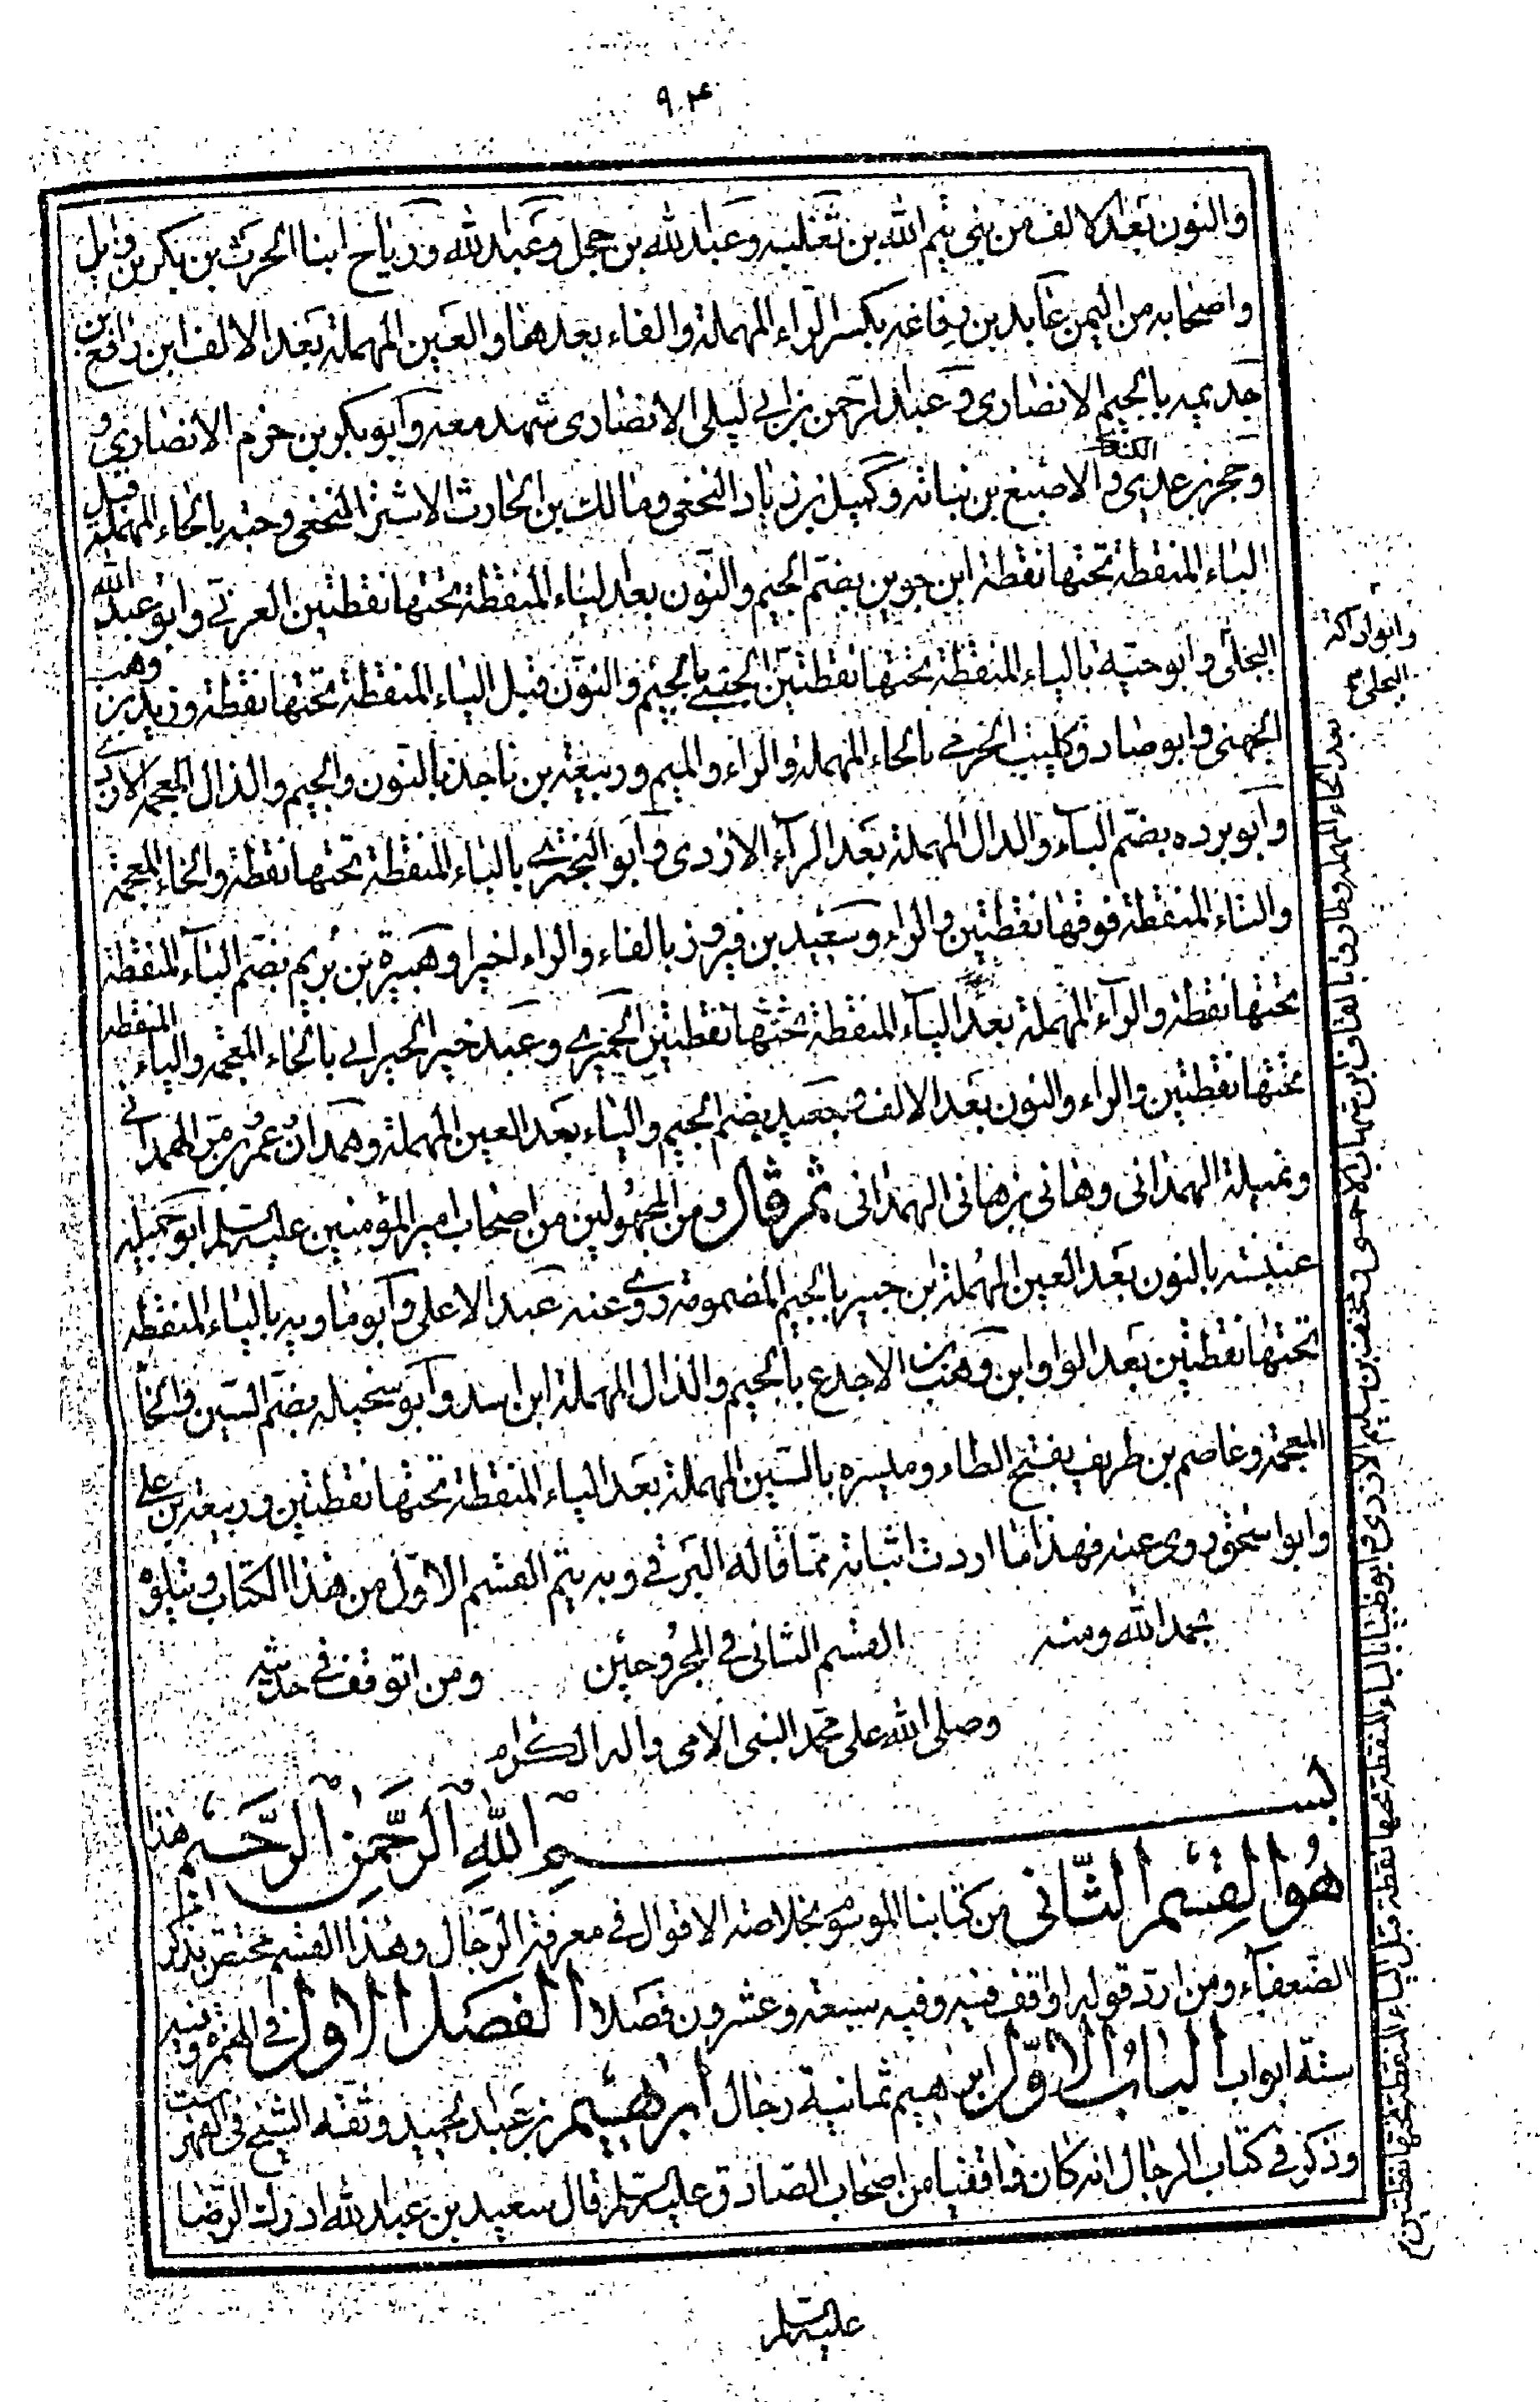 ٩٠٤
والنون بعد الالف من بنى تيم الله بن ثعلبه وعبد الله بن حجل وعبد الله ورياح ابنا الحرث بن بكر بن وايل
واصحابه من اليمن عابد بن رفاعه بكسر الراء المهملة والفاء بعدها والعين المهملة بعد الالف ابن رافع بن
جديمه بالجيم الانصارى وعبد الرحمن بن ابى ليلى الانصارى شهد معه وابو بكر بن حزم الانصارى و
وحجر بن عدى الكندى والاصبغ بن نباته وكميل بن زياد النخعى ومالك بن الحارث الاشتر النخعى وحبه بالحاء المهملة قبل
الباء المنقطة تحتها نقطة ابن جوين بضم الجيم والنون بعد الياء المنقطة تحتها نقطتين العرنى وابو عبد الله
البجلى وابو حيه بالياء المنقطة تحتها نقطتين الجنبى بالجيم والنون قبل الباء المنقطة تحتها نقطة وزيد بن وهب
الجهنى وابو صادق كليب الحرمى بالحاء المهملة والراء والميم وربيعة بن ناجذ بالنون والجيم والذال المعجمه الازدى
وابو برده بضم الباء والدال المهملة بعد الراء الازدى وابو البخترى بالباء المنقطة تحتها نقطة والخاء المعجمة
والتاء المنقطة فوقها نقطتين والراء وسعيد بن فيروز بالفاء والراء اخيرا وهبيرة بن بريم بضم الباء المنقطة
تحتها نقطة والراء المهملة بعد الياء المنقطة تحتها نقطتين الحميرى وعبد خير الخيرانى بالخاء المعجمه والياء المنقطه
تحتها نقطتين والراء والنون بعد الالف وجعيد بضم الجيم والياء بعد العين المهملة وهمدان وعمرو بن مر الهمدانى
وتميلة الهمدانى وهانى بن هانى الهمدانى ثم قال ومن المجهولين من اصحاب امير المؤمنين عليه السلم ابو جميله
عنبسه بالنون بعد العين المهملة ابن جبير بالجيم المضمومه روى عنه عبد الاعلى وابو ماويه بالياء المنقطه
تحتها نقطتين بعد الواو ابن وهب بن الاجدع بالجيم والدال المهملة ابن اسد وابو سخيله بضم السين والخاء
المعجمة وعاصم بن طريف بفتح الطاء وميسره بالسين المهملة بعد الياء المنقطة تحتها نقطتين وربيعة بن على
وابو اسحق روى عنه فهذا ما اردت اثباته مما قاله البرقى وبه يتم القسم الاول من هذا الكتاب ويتلوه
بحمد الله ومنه القسم الثانى فى المجروحين ومن اتوقف فى حديثه
وصلى الله على محمد النبى الامى واله الكرام
بسم الله الرحمن الرحيم هذا
هو القسم الثانى من كتابنا الموسوم بخلاصه الاقوال فى معرفة الرجال وهذا القسم مختص بذكر
الضعفاء ومن ارد قوله او اقف فيه وفيه سبعة وعشرون فصلا الفصل الاول فى الهمزه وفيه
ستة ابواب الباب الاول ابرهيم ثمانية رجال ابرهيم بن عبد الحميد وثقه الشيخ فى الفهرست
وذكر فى كتاب الرجال انه كان واقفيا من اصحاب الصادق عليه السلم قال سعيد بن عبد الله ادرك الرضا
عليه السلم
وابو اراكة
البجلى
بعد الحاء المهملة وطارق بالقاف ابن شهاب الاحمسى ومخنف بن سليم الازدى وابو ظبيان بالباء المنقطة تحتها نقطة قبل الياء المنقطة تحتها نقطتين